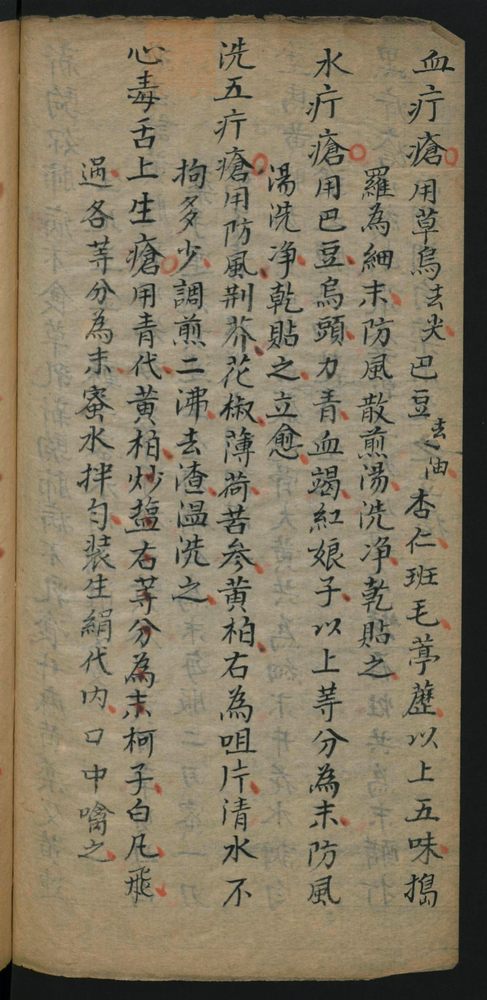 血疔瘡用草烏去尖巴豆去油杏仁班毛葶藶以上五味搗
羅為細末防風散煎湯洗净乾貼之
水疔瘡用巴豆烏頭力青血竭紅娘子以上等分為末防風
湯洗净乾貼之立愈
洗五疔瘡用防風荆芥花椒薄荷苦参黄柏右為咀片清水不
拘多少調煎二沸去渣温洗之
心毒舌上生瘡用青代黄柏炒塩右等分為末柯子白凡飛
過各等分為末蜜水拌匀装生絹代内口中噙之